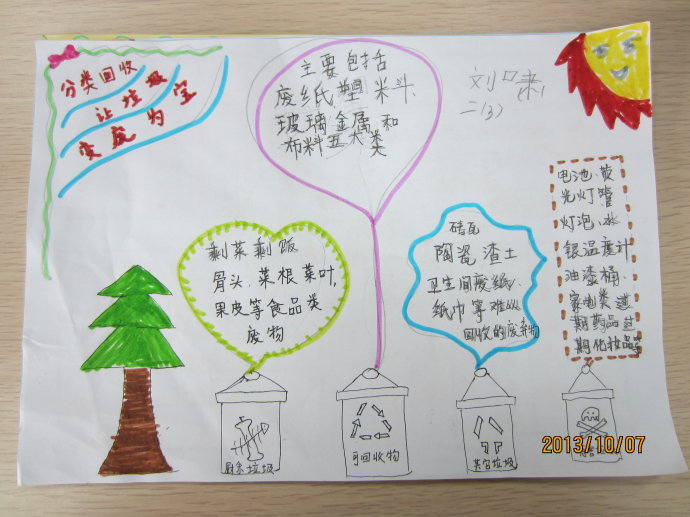 分类回收
让垃圾
变废为宝
主要包括
废纸塑料
玻璃金属和
布料五大类
二(3)
剩菜剩饭
骨头、菜根菜叶,
果皮等食品类
废物
砖瓦
陶瓷渣土
卫生间废纸、
纸巾等难以
回收的废弃物
电池、荧
光灯管
灯泡、水
银温度计
油漆桶、
家电类过
期药品过
期化妆品等
厨余垃圾
可回收物
其它垃圾
2013/10/07